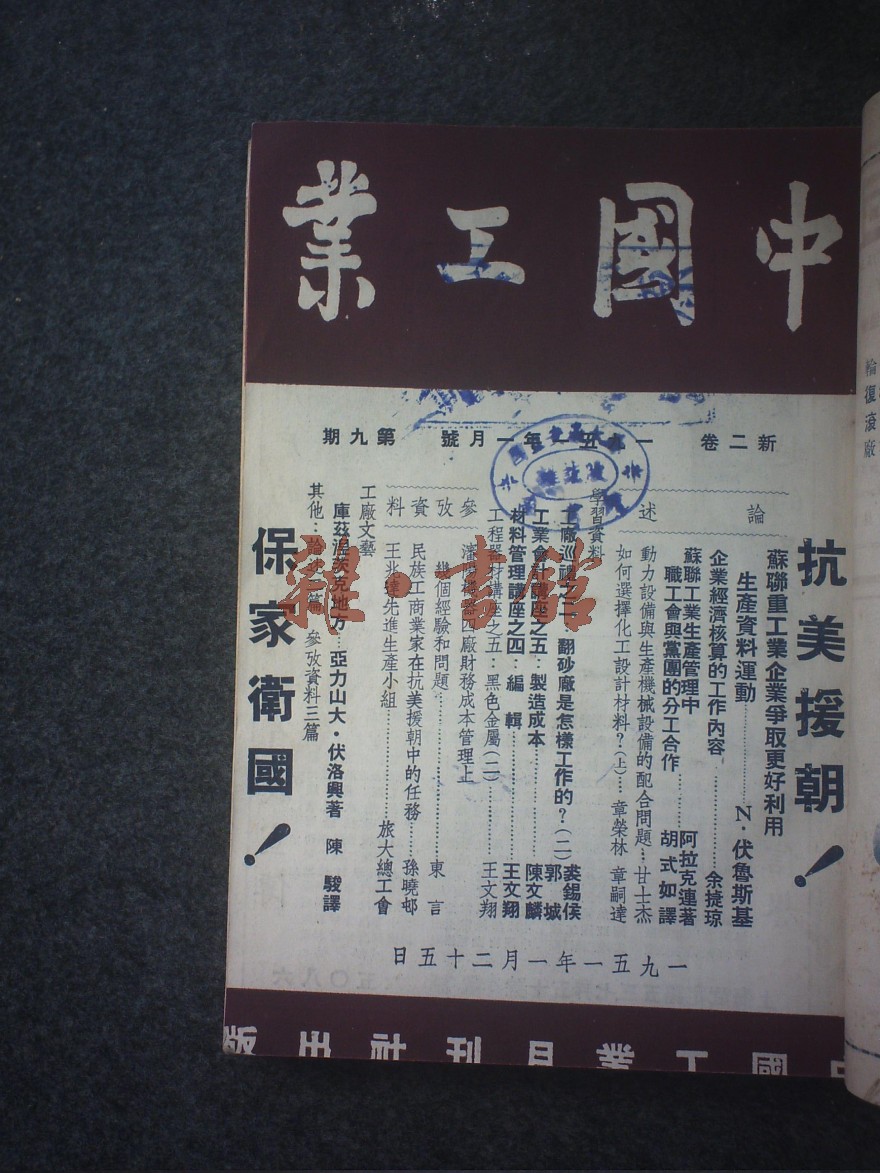 中國工業
新二卷 一九五一年一月號 第九期
抗美援朝！
論述
蘇聯重工業企業爭取更好利用
生產資料運動……N·伏魯斯基
企業經濟核算的工作內容……余捷琼
蘇聯工業生產管理中
職工會與黨團的分工合作……阿拉克連著 胡式如譯
動力設備與生產機械設備的配合問題…甘士杰
如何選擇化工設計材料？(上)…章榮林 章嗣達
學習資料
工廠巡禮之二：翻砂廠是怎樣工作的？(二) 裘錫侯 郭城
工業會計講座之五：製造成本……陳文麟
材料管理講座之四：編輯……王文翔
工程器材講座之五：黑色金屬(二)……王文翔
參攷資料
瀋陽機器四廠財務成本管理上
幾個經驗和問題……東言
民族工商業家在抗美援朝中的任務…孫曉邨
王兆達先進生產小組……旅大總工會
工廠文藝
庫茲涅茨克地方…亞力山大·伏洛興著 陳駿譯
其他：論述二篇 參攷資料三篇
保家衛國！
一九五一年一月二十五日
中國工業月刊社出版
雜·書館
輪復滾廠